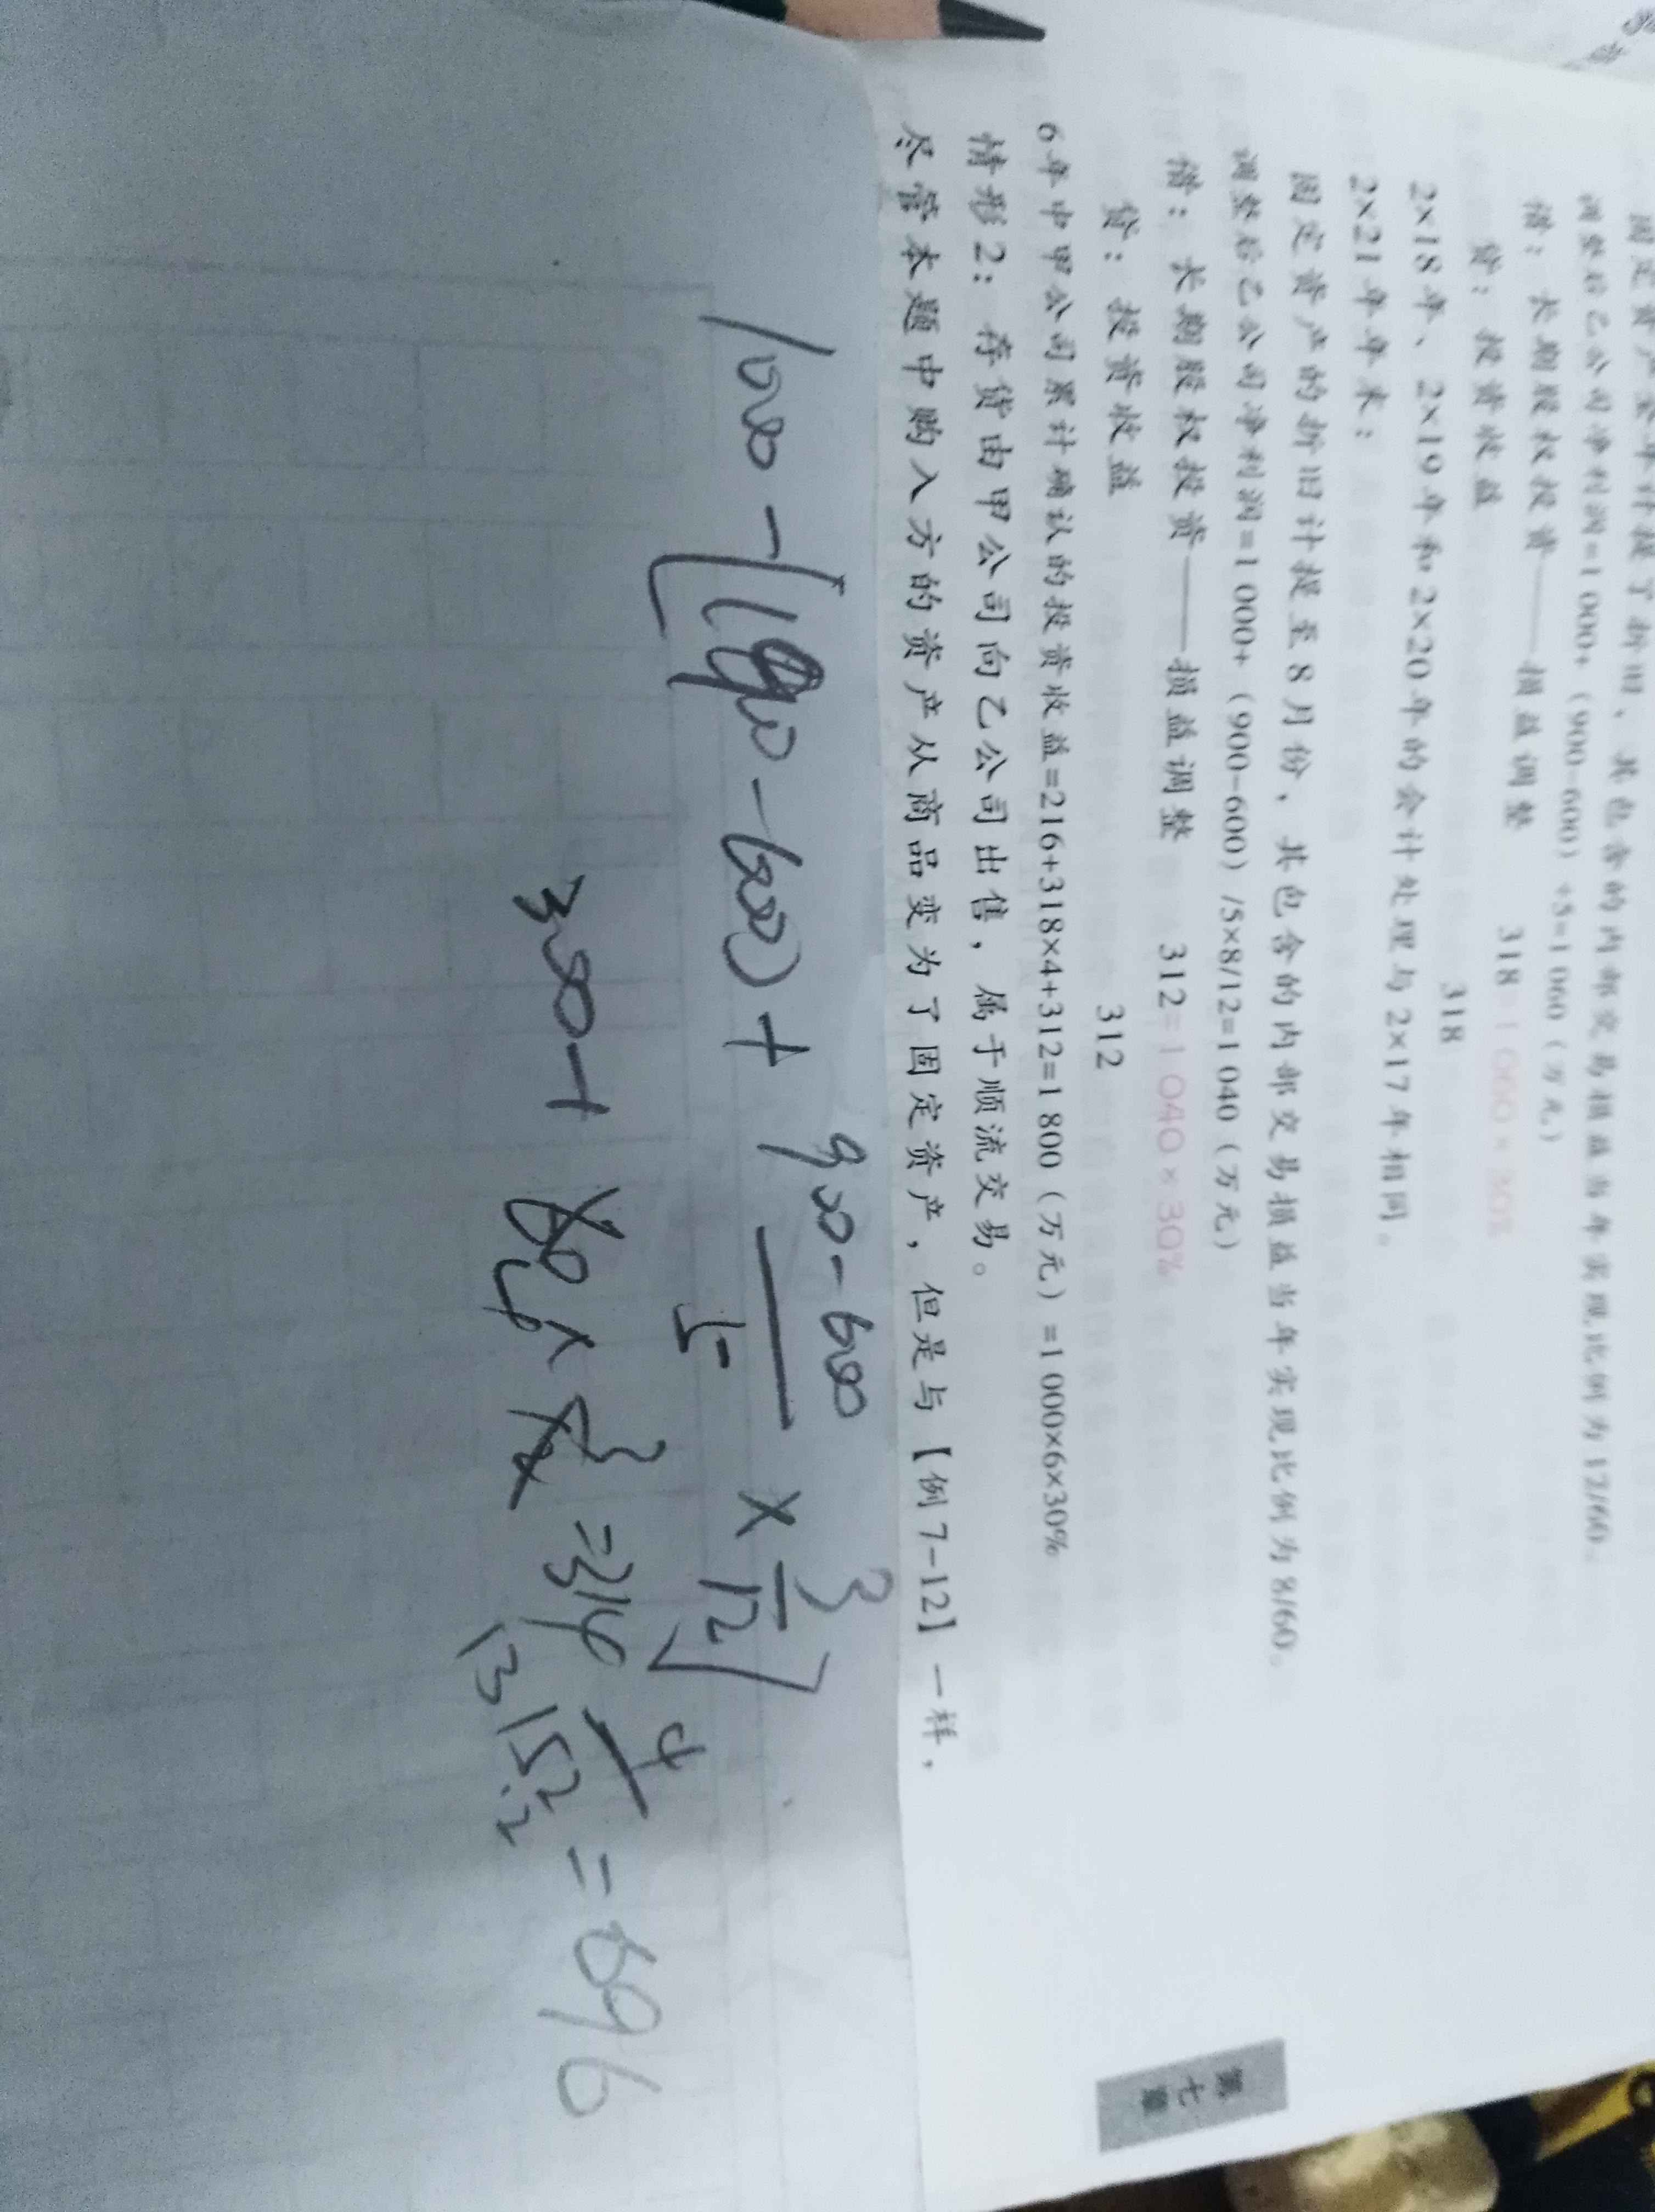 固定资产全年计提了折旧，其包含的内部交易损益当年实现比例为12/60。
调整后乙公司净利润=1 000+（900-600）÷5=1 060（万元）
借：长期股权投资——损益调整 318 1 060×30%
贷：投资收益 318
2×18年、2×19年和2×20年的会计处理与2×17年相同。
2×21年年末：
固定资产的折旧计提至8月份，其包含的内部交易损益当年实现比例为8/60。
调整后乙公司净利润=1 000+（900-600）/5×8/12=1 040（万元）
借：长期股权投资——损益调整 312=1 040×30%
贷：投资收益 312
6年中甲公司累计确认的投资收益=216+318×4+312=1 800（万元）=1 000×6×30%
情形2：存货由甲公司向乙公司出售，属于顺流交易。
尽管本题中购入方的资产从商品变为了固定资产，但是与【例7-12】一样，
900-600 3
-600)+ × ]
5 12
300
第七章